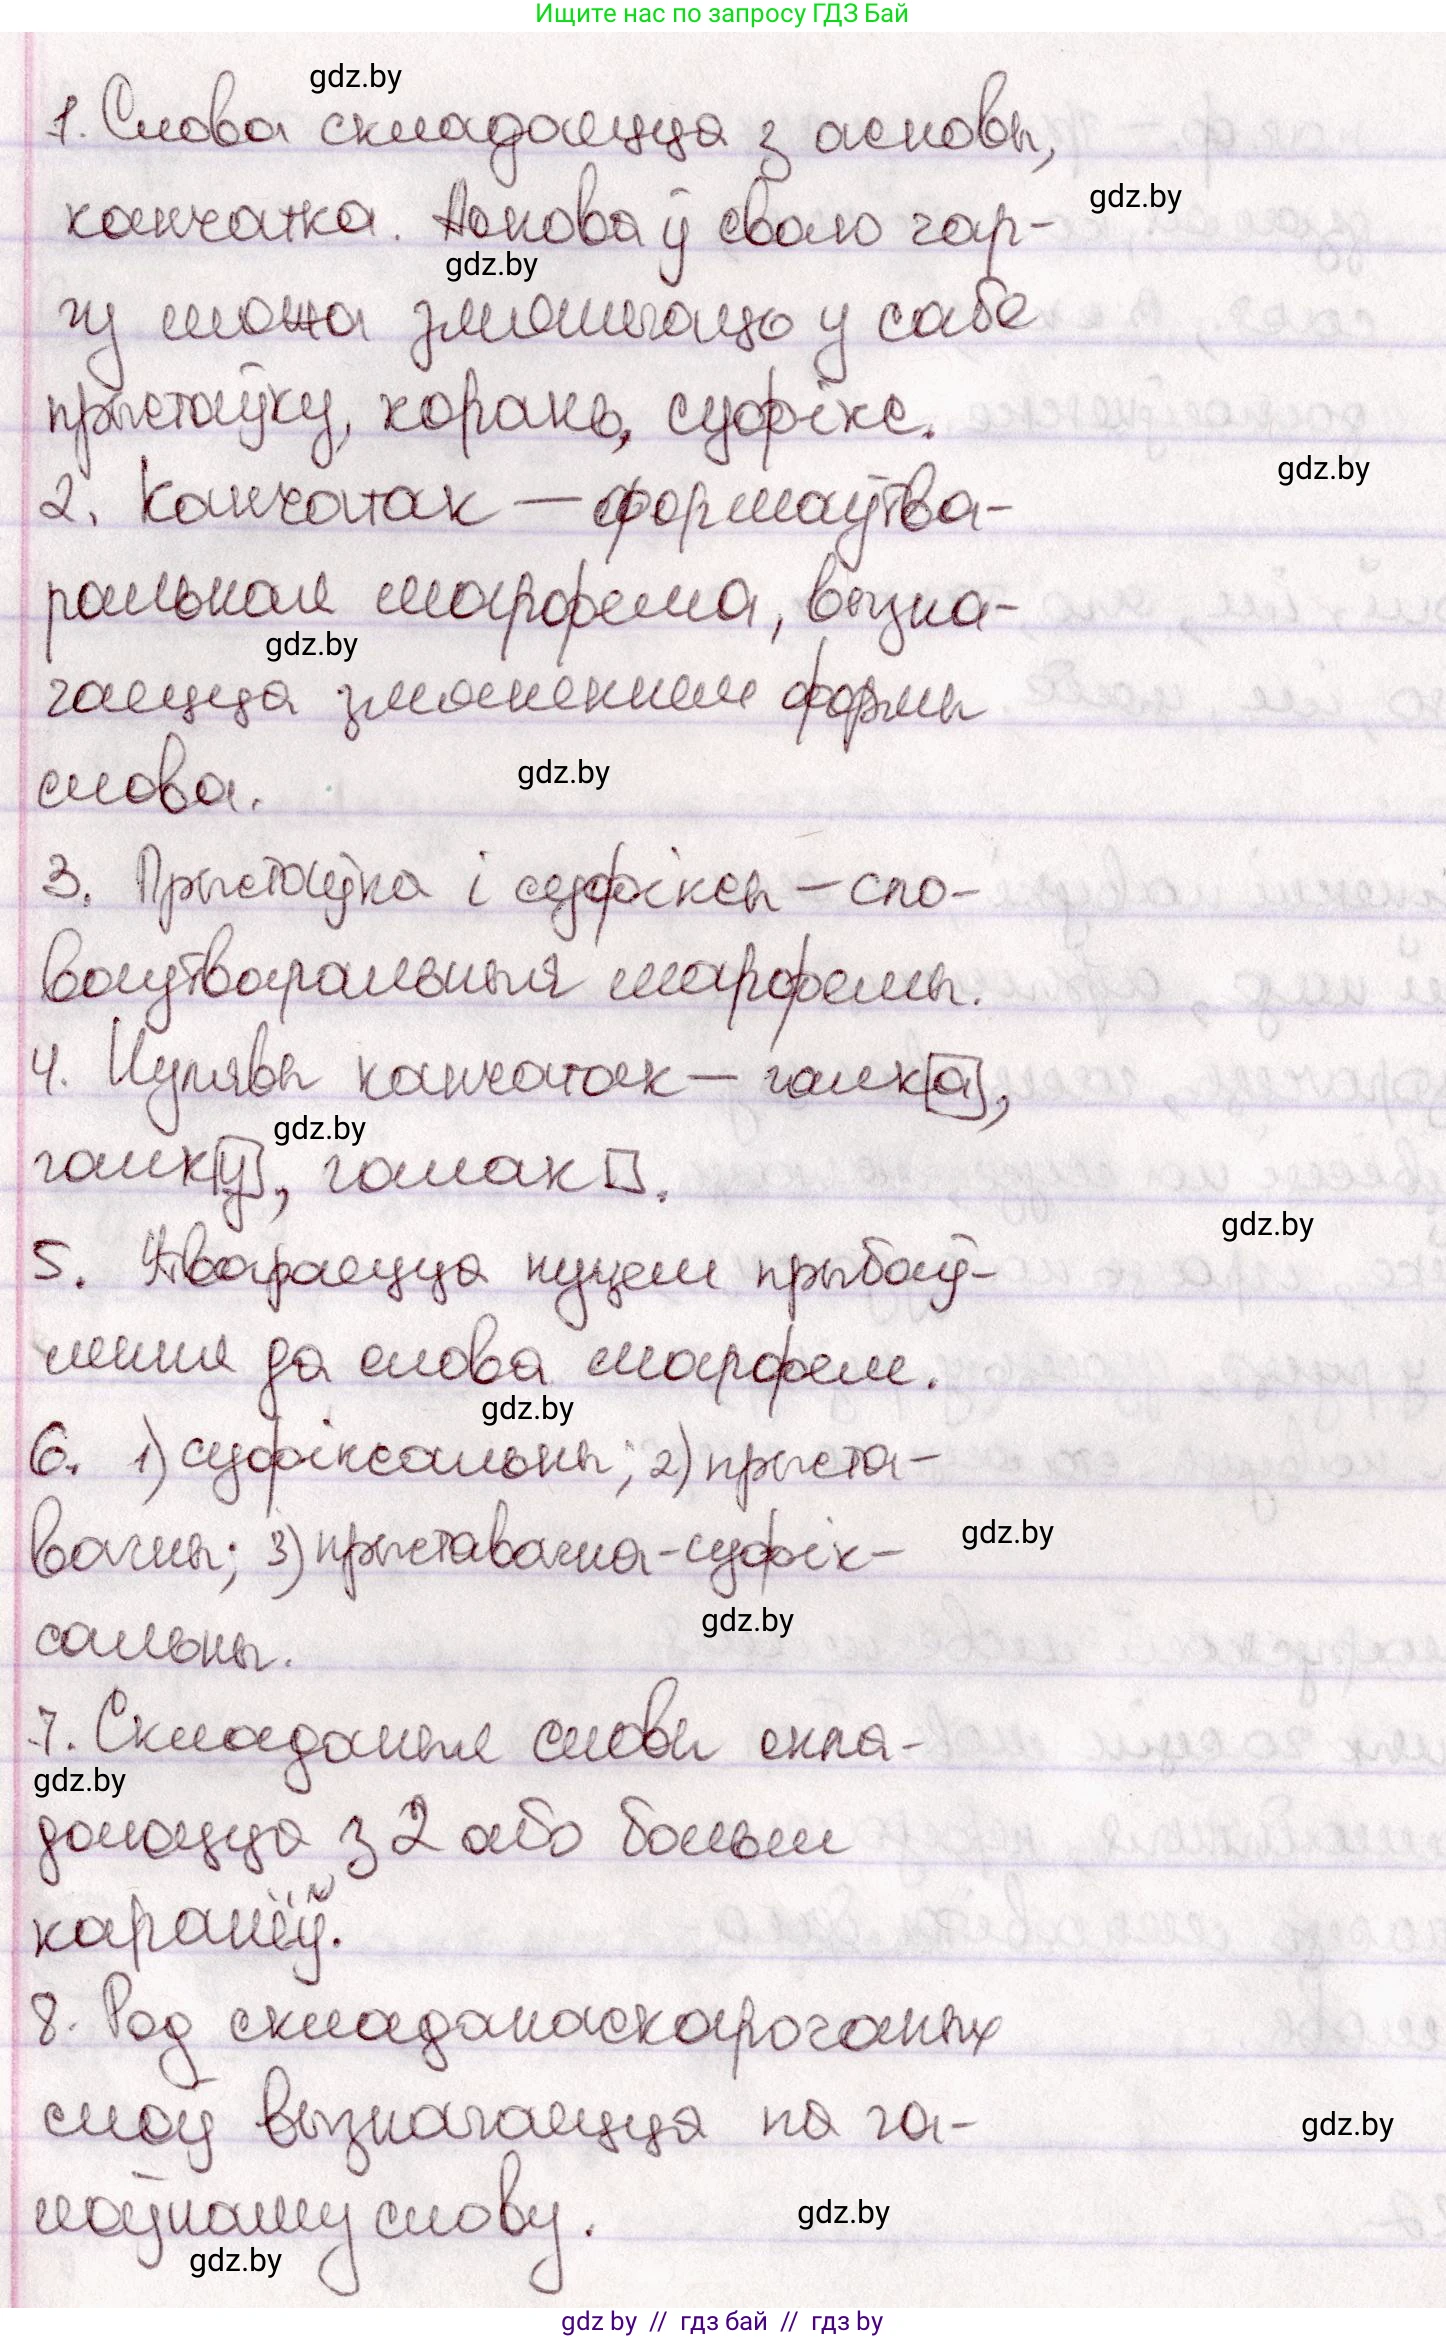 Ищите нас по запросу ГДЗ Бай
gdz.by
1. Слова складаецца з асновы,
gdz.by
канчатка. Аснова ў сваю чар-
gdz.by
гу можа змяшчаць у сабе
прыстаўку, корань, суфікс.
gdz.by
2. Канчатак – формаўтва-
ральная марфема, вызна-
gdz.by
чаецца змяненнем формы
gdz.by
слова.
3. Прыстаўка і суфіксы – сло-
ваутваральныя марфемы.
4. Нулявы канчатак – галк[а],
gdz.by
галк[у], галак□.
gdz.by
5. Утвараецца шляхам прыбаў-
лення да слова марфем.
gdz.by
6. 1) суфіксальны; 2) прыста-
вачны; 3) прыставачна-суфік-
gdz.by
gdz.by
сальны.
7. Складаныя словы скла-
gdz.by
даюцца з 2 або больш
каранёў.
8. Род складанаскарочаных
слоў вызначаецца па га-
gdz.by
лоўнаму слову.
gdz.by
gdz.by
gdz by // гдз бай // гдз by